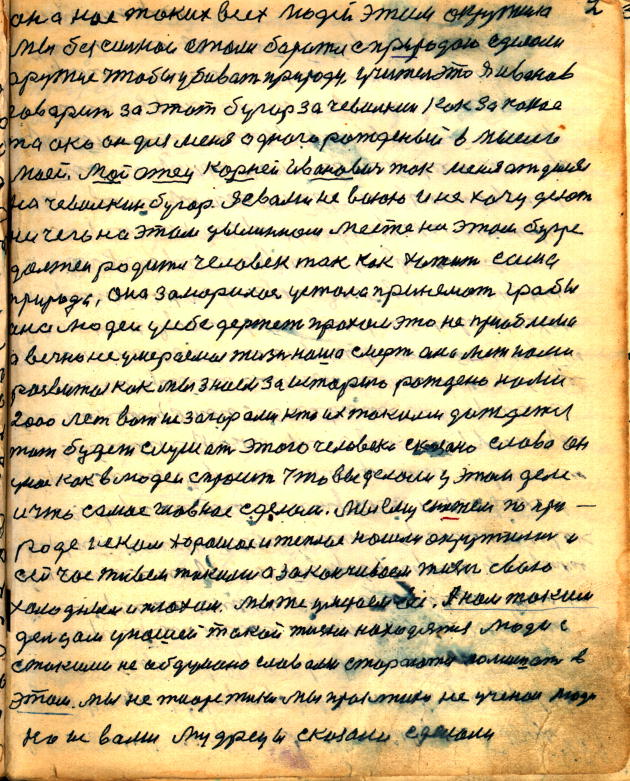 она нас таких всех людей этим окружила 2
мы бессилной стали боротися природою сделали
оружие чтобы убиват природу, учител это я Иванов
говарит за этот бугор за чевилкин как за какое
то око он для меня одного рожденый в мысли
моей. Мой отец Корней Иванович так меня
на чевилкин бугор. Я с вами не воюю и не хочу делот
ни чего на этом умилином месте на этом бугре
должен родится человек так как хочит сама
природа, она заморилас устола принемат гробы
она людей у себе держит прахом это не проблема
а вечно не умераемая жизн наша смерт она
развитая как мы знаем за историю рождено нами
2000 лет вот и загарали кто их такими дождется
тот будет слушат этого человека сказано слово он
у нас как в людей спросит что вы сделали у этом деле
и что самое главное сделали. Мы ему скажем по при—
роде искали хорошое и теплое нашли окружили и
сейчас живем такими а заканчиваем жизн свою
холодным и плохим. мы же умераем все. А нам таким
делцам у нашей такой жизни находятся люди с
с такими не обдумано словами стораются помишат в
этом. мы не теоретики мы практики не ученои люди
но и с вами мудреци сказали сделали